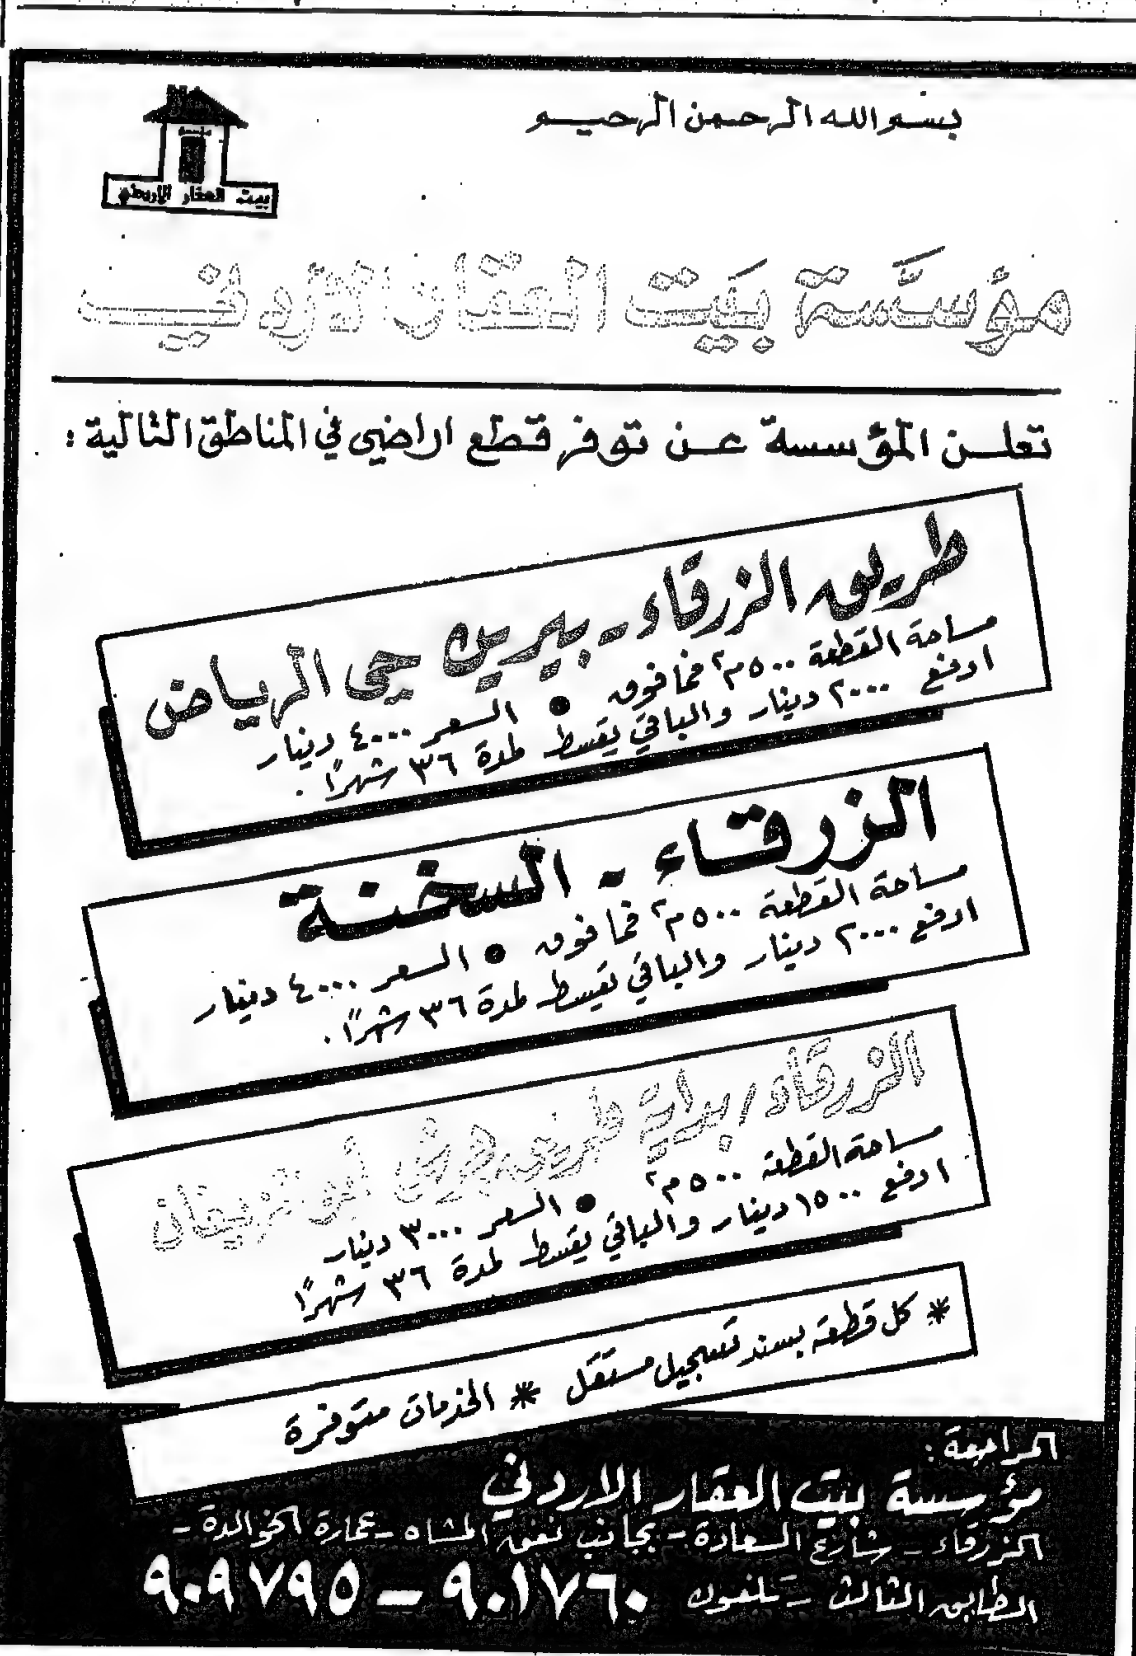 بسم الله الرحمن الرحيم
مؤسسة
بيت العقار الاردني
مؤسَّسة بَيت العقار الأردني
تعلن المؤسسة عن توفر قطع اراضي في المناطق التالية :
طريق الزرقاء - بيرين حي الرياض
مساحة القطعة ٥٠٠ م٢ فما فوق ● السعر ٤٠٠٠ دينار
ادفع ٢٠٠٠ دينار والباقي يقسط لمدة ٣٦ شهرًا .
الزرقاء - السخنة
مساحة القطعة ٥٠٠ م٢ فما فوق ● السعر ٤٠٠٠ دينار
ادفع ٢٠٠٠ دينار والباقي يقسط لمدة ٣٦ شهرًا .
الزرقاء / بداية طريق جرش أبو تريفان
مساحة القطعة ٥٠٠ م٢ ● السعر ٣٠٠٠ دينار
ادفع ١٥٠٠ دينار والباقي يقسط لمدة ٣٦ شهرًا
* كل قطعة بسند تسجيل مستقل * الخدمات متوفرة
المراجعة :
مؤسسة بيت العقار الاردني
الزرقاء - شارع السعادة - بجانب نفق المشاه - عمارة الخوالدة -
الطابق الثالث - تلفون ٩٠١٧٦٠ - ٩٠٩٧٩٥